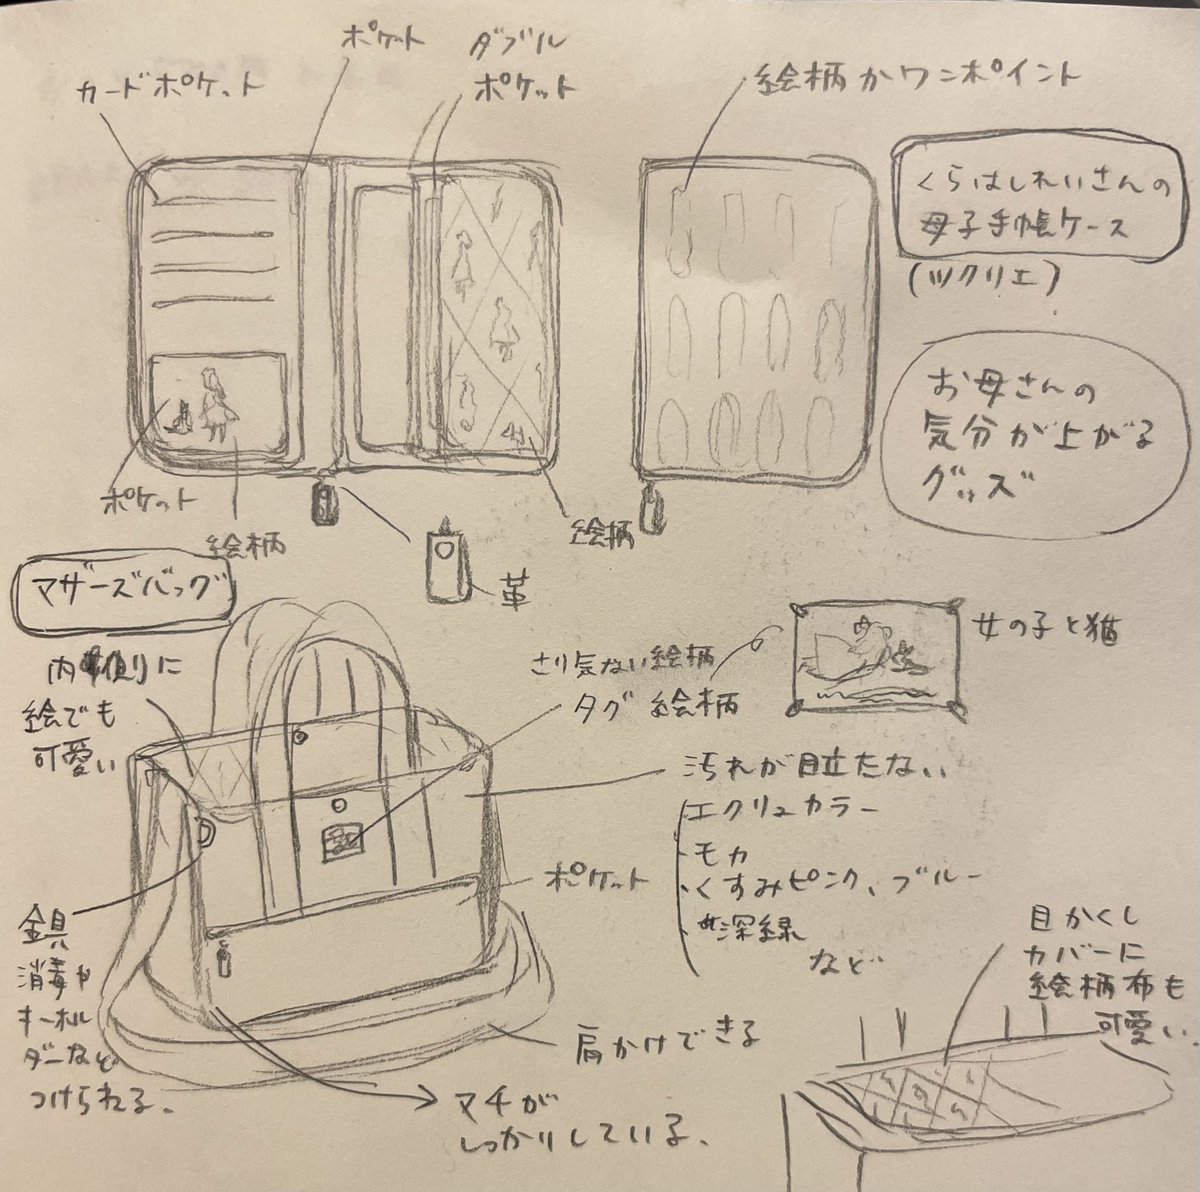 ポケット
ダブル
ポケット
カードポケット
絵柄かワンポイント
くらはしれいさんの
母子手帳ケース
(ツクリエ)
お母さんの
気分が上がる
グッズ
ポケット
絵柄
絵柄
革
マザーズバッグ
内側りに
絵でも
可愛い
さり気ない絵柄
タグ 絵柄
女の子と猫
汚れが目立たない
エクリュカラー
モカ
くすみピンク、ブルー
深緑
など
ポケット
金具
消毒や
キーホル
ダーなど
つけられる。
肩かけできる
マチが
しっかりしている。
目かくし
カバーに
絵柄布も
可愛い.